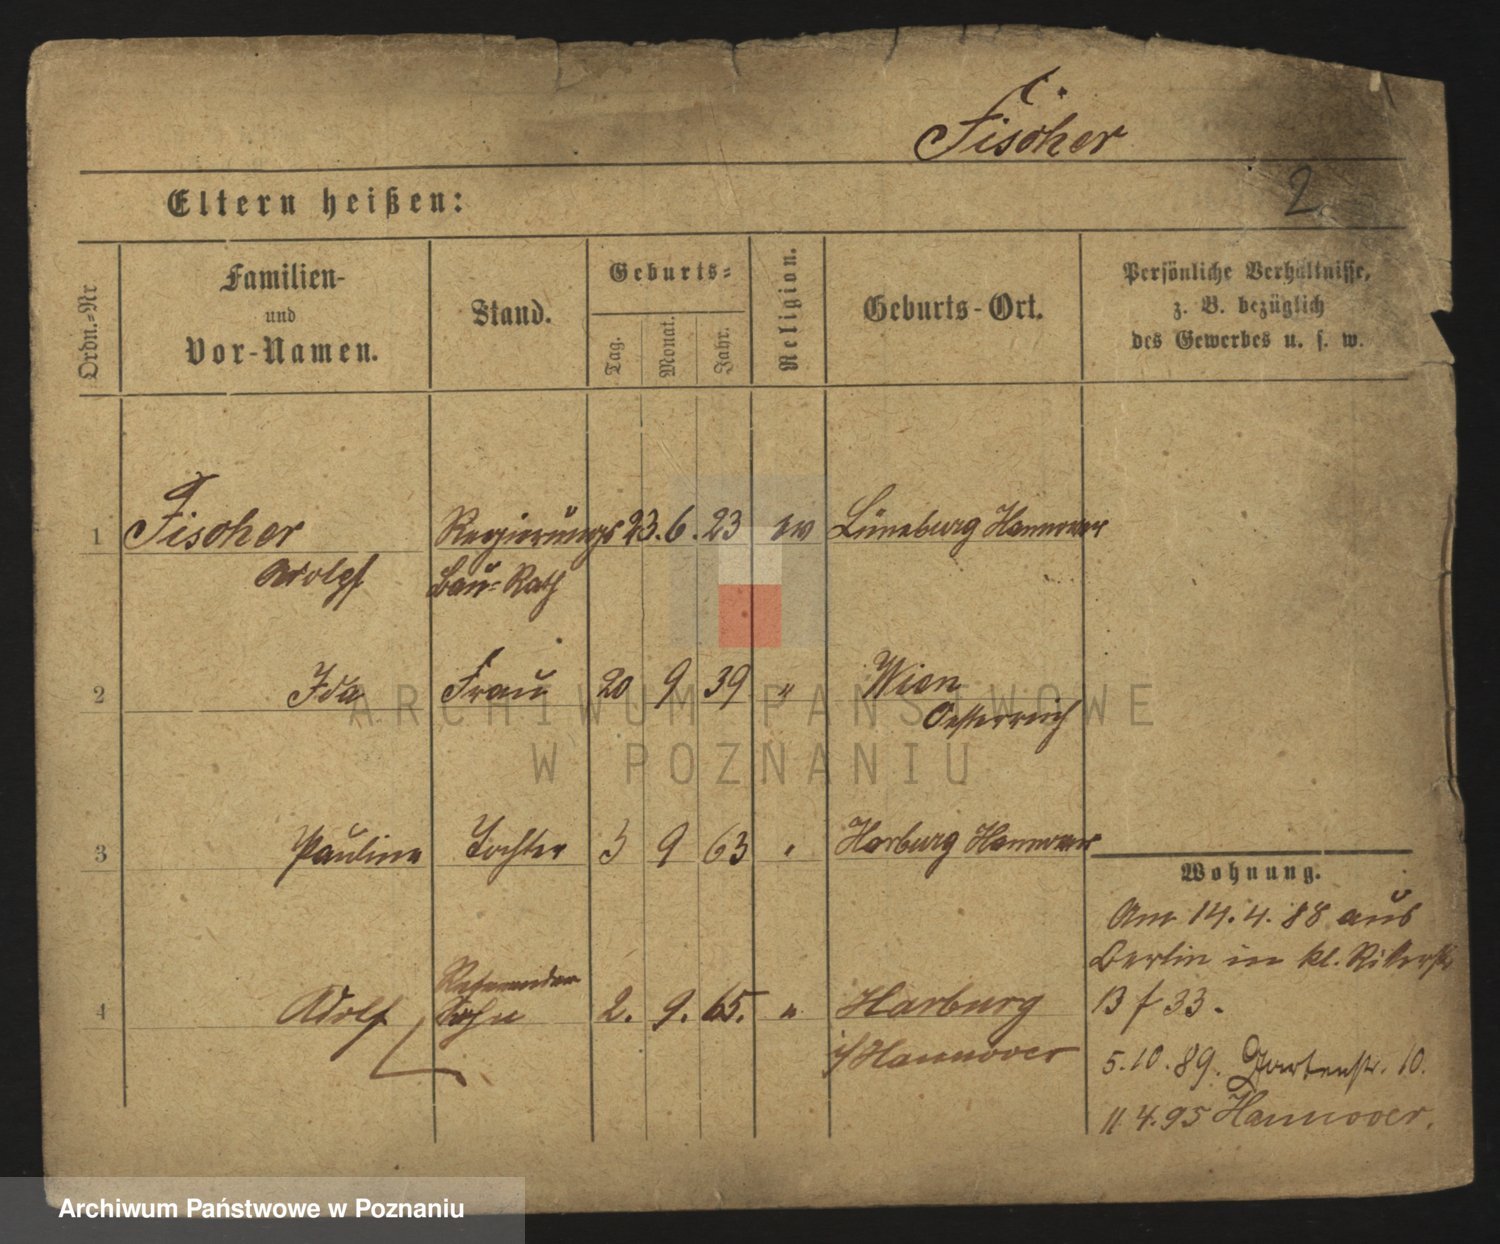 Fischer
2
Eltern heißen:
Ordn.-Nr
Familien-
und
Vor-Namen.
Stand.
Geburts-
Tag.
Monat.
Jahr.
Religion.
Geburts-Ort.
Persönliche Verhältnisse,
z. B. bezüglich
des Gewerbes u. s. w.
1 Fischer Regierungs 23. 6. 23 ev Lüneburg Hannover
Adolf Bau-Rath
2 Ida Frau 20 9 39 " Wien
Oesterreich
ARCHIWUM PAŃSTWOWE
W POZNANIU
3 Pauline Tochter 3 9 63 " Harburg Hannover
Referendar
4 Adolf Sohn 2. 9. 65. " Harburg
i/Hannover
Wohnung.
Am 14. 4. 88 aus
Berlin in kl. Ritterstr
13 f 33.
5. 10. 89. Gartenstr. 10.
11. 4. 95 Hannover.
Archiwum Państwowe w Poznaniu